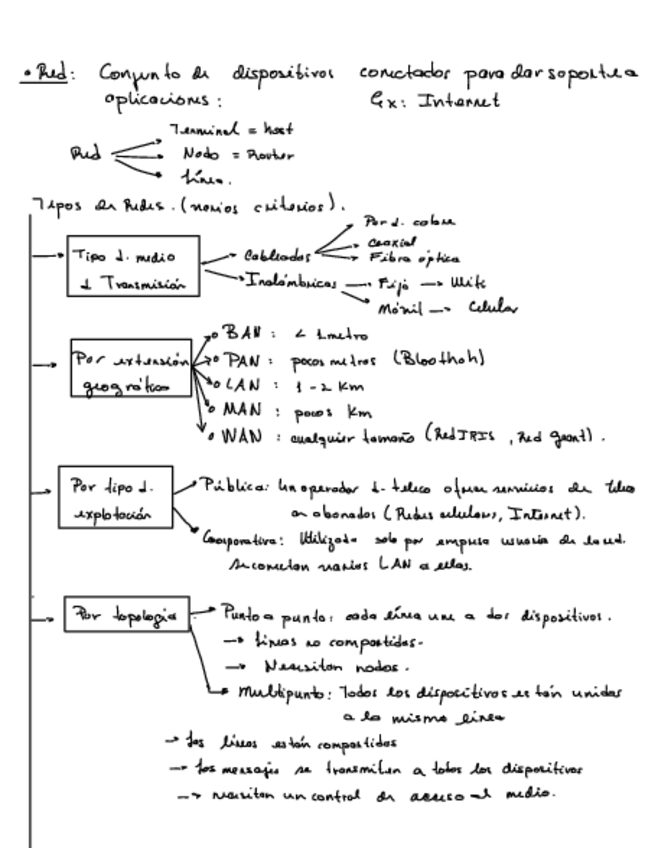 • Red: Conjunto de dispositivos conectados para dar soporte a
aplicaciones: Ex: Internet
Terminal = host
Red Nodo = Router
Línea.
Tipos de Redes. (varios criterios).
Par d. cobre
Tipo d. medio Cableados Coaxial
d Transmisión Fibra óptica
Inalámbricas → Fijo → Wifi
Móvil → Celular
BAN : < 1 metro
Por extensión PAN : pocos metros (Bloothoh)
geográfica LAN : 1 - 2 Km
MAN : pocos Km
WAN : cualquier tamaño (RedIRIS, Red geant).
Por tipo d. Pública: Un operador d. teleco ofrece servicios de teleco
explotación a abonados (Redes celulares, Internet).
Corporativa: Utilizada solo por empresa usuaria de la red.
Se conectan varias LAN a ellas.
Por topología Punto a punto: cada línea une a dos dispositivos.
→ Líneas no compartidas.
→ Necesitan nodos.
Multipunto: Todos los dispositivos están unidos
a la misma línea
→ Las líneas están compartidas
→ Los mensajes se transmiten a todos los dispositivos
→ necesitan un control de acceso al medio.